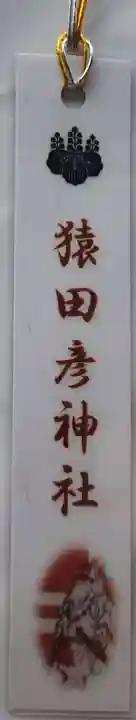 猿田彦神社